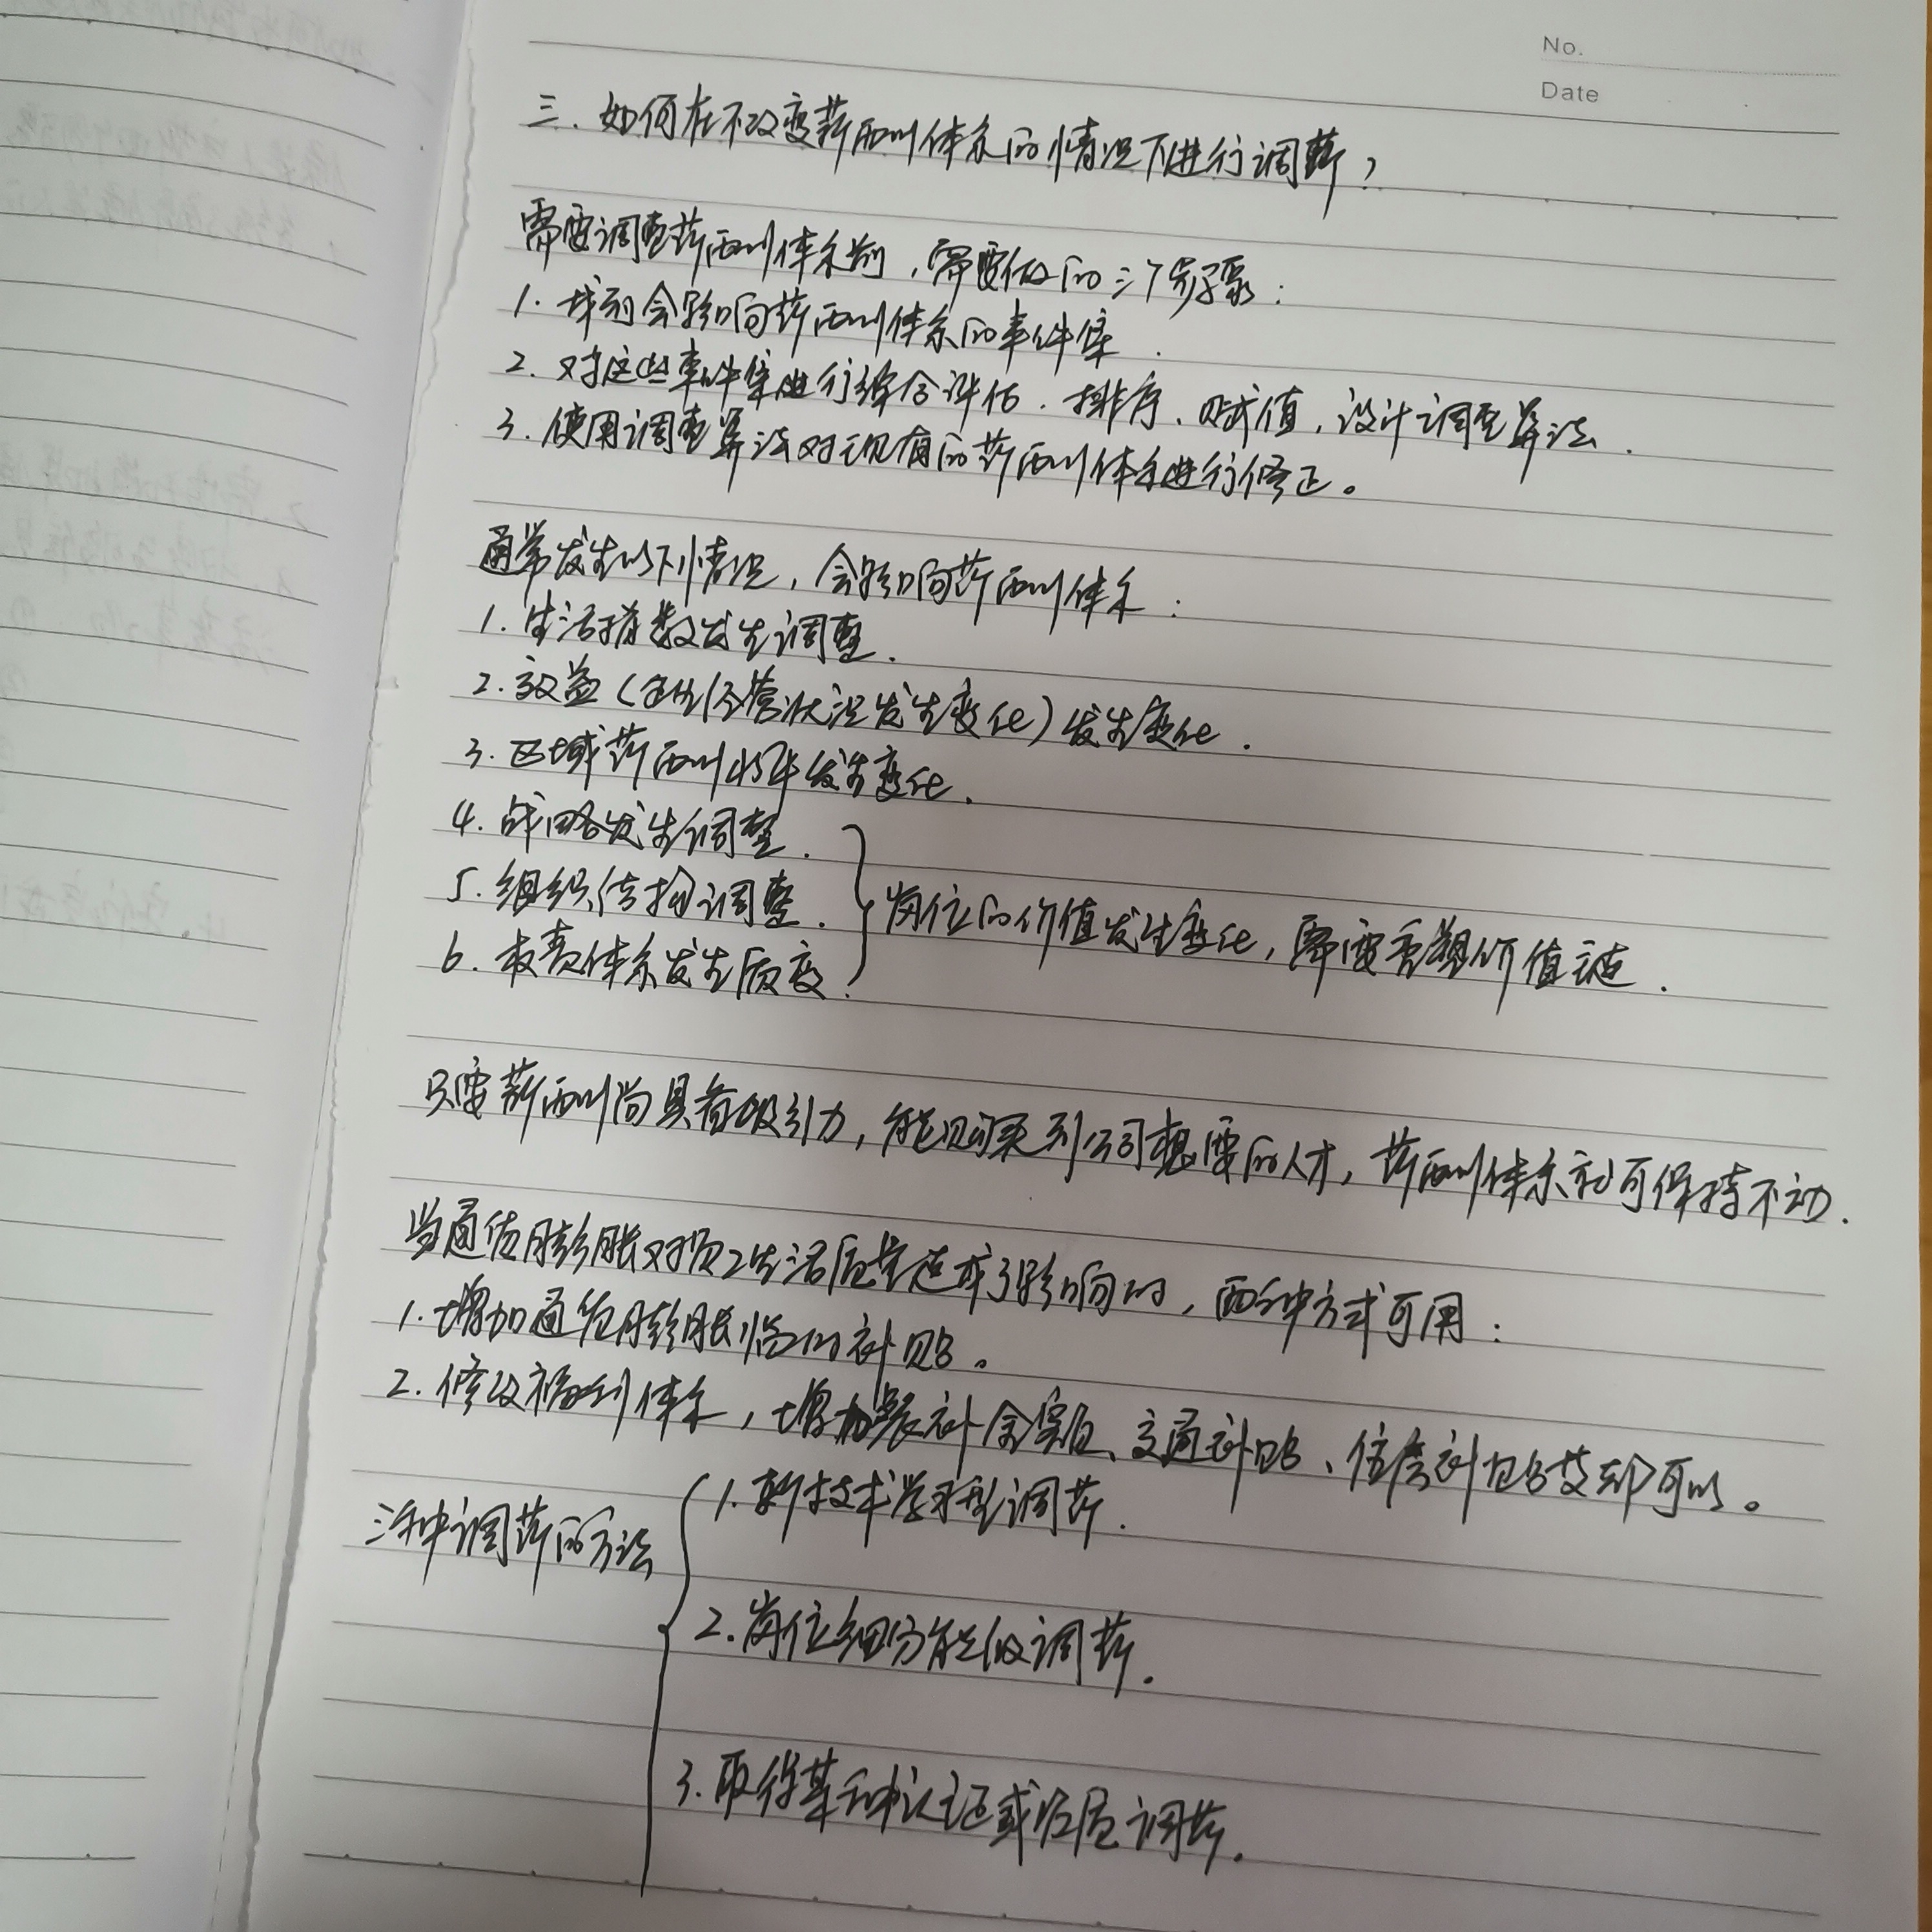 No.
Date
三.如何在不改变薪酬体系的情况下进行调薪?
需要调整薪酬体系前,需要做的三个步骤:
1.找到会影响薪酬体系的事件集.
2.对这些事件集进行综合评估.排序、赋值,设计调整算法.
3.使用调整算法对现有的薪酬体系进行修正。
通常发生以下情况,会影响薪酬体系:
1.生活指数发生调整.
2.效益(企业经营状况发生变化)发生变化.
3.区域薪酬水平发生变化.
4.战略发生调整.
5.组织结构调整.
6.权责体系发生质变.
岗位的价值发生变化,需要重塑价值链.
只要薪酬尚具备吸引力,能购买到公司想要的人才,薪酬体系就可保持不动.
当通货膨胀对员工生活质量造成了影响时,两种方式可用:
1.增加通货膨胀临时补贴。
2.修改福利体系,增加餐补金额、交通补贴、住房补贴等都可以。
三种调薪的方法
1.新技术学习型调薪.
2.岗位细分能级调薪.
3.取得某种认证或征信调薪.